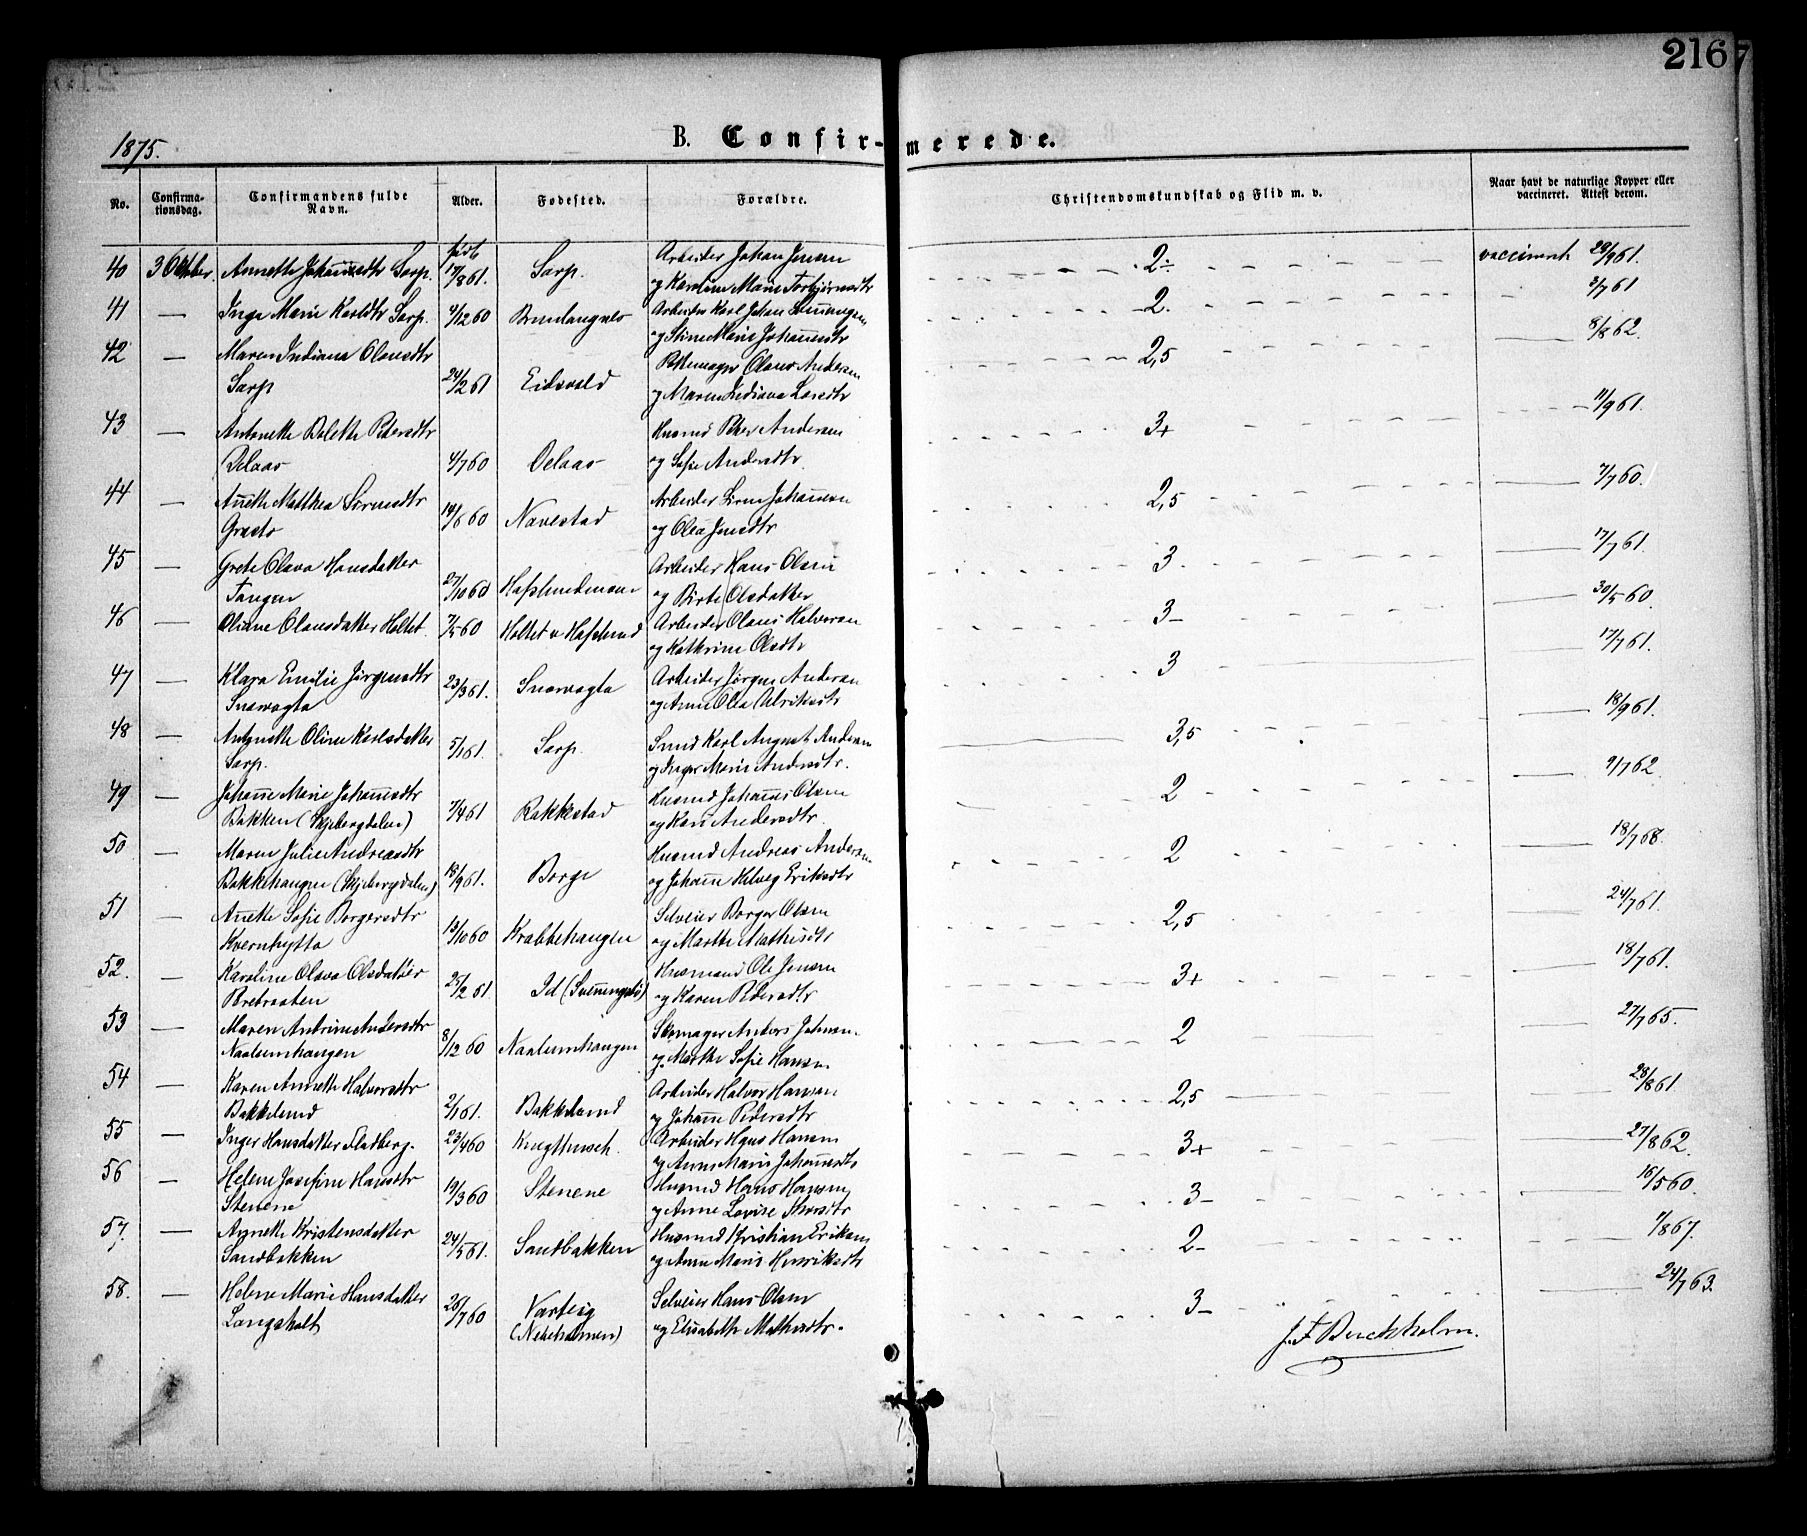 216
7
1875.
B. Confirmerede.
No.
Confirma-
tionsdag.
Confirmandens fulde
Navn.
Alder.
Fødested.
Forældre.
Christendomskundskab og Flid m. v.
Naar havt de naturlige Kopper eller
vaccineret. Attest derom.
født
40 3 Oktober. Annette Johannesdtr Sarp. 17/8 61. Sarp. Arbeider Johan Jensen 2÷ vaccineret 29/9 61.
og Karoline Marie Torbjørnsdtr
41 — Inga Marie Karlsdtr Sarp. 4/12 60 Arbeider Karl Johan 2. 2/7 61
og Stine Marie Johannesdtr
42 — Maren Indiana Olausdtr Olaus Andersen 2,5 — 8/8 62.
Sarp 24/2 61 Eidsvold og Maren Indiana Larsdtr
43 — Antonette Bolette Pedersdtr Husmd Peder Andersen 3+ 11/9 61.
Delaas 4/7 60 Delaas og Sofie Andersdtr.
44 — Anette Matthea Sørensdtr Arbeider Søren Johannesen 2,5 — 7/7 60.
Græsto 14/6 60 Navestad og Olea Jensdtr
45 — Grete Olava Hansdatter Arbeider Hans Olsen 3. — 17/7 61.
Tangen 27/10 60 Hafslundmoen og Birte Olsdatter
46 — Oliane Olausdatter Holtet. 7/5 60 Holtet v Hafslund Arbeider Olaus Halvorsen 3- — 30/5 60.
og Kathrine Olsdtr
47 — Klara Emilie Jørgensdtr 23/3 61. Snarvagta Arbeider Jørgen Andersen 3 — 17/7 61.
Snarvagta og Anne Olea Ulriksdtr
48 — Antonette Oline Karlsdatter 5/1 61. Sarp. Smed Karl August Andersen 3,5 — 18/9 61.
Sarp. og Inger Marie Andersdtr.
49 — Johanne Marie Johannesdtr Husmd Johannes Olsen 2 — 9/7 62.
Bakken (Skjebergdalen) 7/4 61 Rakkestad og Kari Andersdtr.
50 — Maren Julie Andreasdtr Husmd Andreas Andersen 2 — 18/7 68.
Bakkehaugen (Skjebergdalen) 18/9 61. Borge og Johanne Helveg Eriksdtr
51 — Anette Sofie Borgersdtr Selveier Borger Olsen 2,5 — 24/7 61.
Kvernhytta 13/10 60 Krabbehaugen og Marthe Mathisdtr
52. — Karoline Olava Olsdatter Husmand Ole Jensen 3+ — 18/7 61.
Bretraaten 25/2 61. Id og Karen Pedersdtr
53 — Maren Antrine Andersdtr Skomager Anders Johnsen 2 — 27/7 65.
Naalsumhaugen 8/12 60 Naalsumhaugen og Marthe Sofie Hansen
54 — Karen Annette Halvorsdtr Arbeider Halvor Hansen 2,5 — 28/8 61
Bakkelund 2/1 61. Bakkelund og Johanne Pedersdtr
55 — Inger Hansdatter Fladberg. 23/4 60 Arbeider Hans Hansen 3+ — 27/8 62.
og Anne Marie Johannesdtr
56 — Helene Josefine Hansdtr 19/3 60 Stenene Husmd Hans Hansen 3- — 16/5 60.
Stenene og Anne Lovise
57. — Annette Kristensdatter 24/5 61. Sandbakken Husmd Kristian Eriksen 2- 7/8 67.
Sandbakken og Anne Marie Henriksdtr
58. — Helene Marie Hansdatter 26/7 60 Varteig Selveier Hans Olsen 3- — 24/7 63.
Langsholt og Elisabeth Mathisdtr.
J. F. Buchholm.